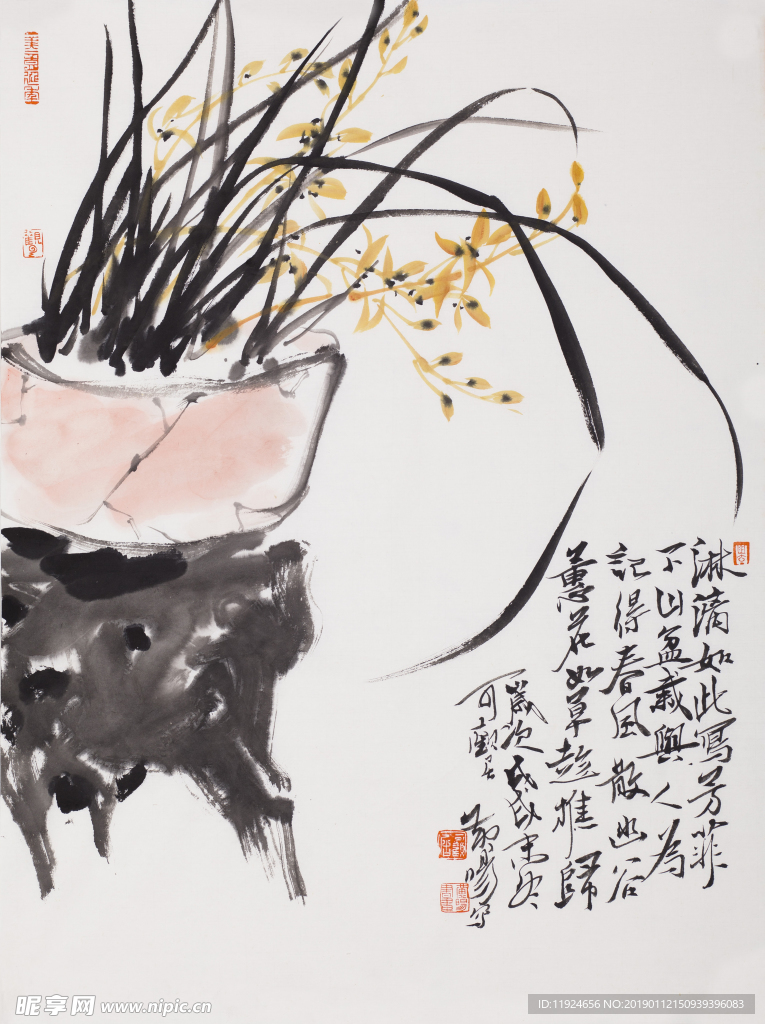 淋漓如此寫芳菲
盆栽與人為
記得春風散幽谷
蕙如草趁樵歸
歲次戊戌冬
可觀居 寫
昵享网 www.nipic.cn
ID:11924656 NO:20190112150939396083